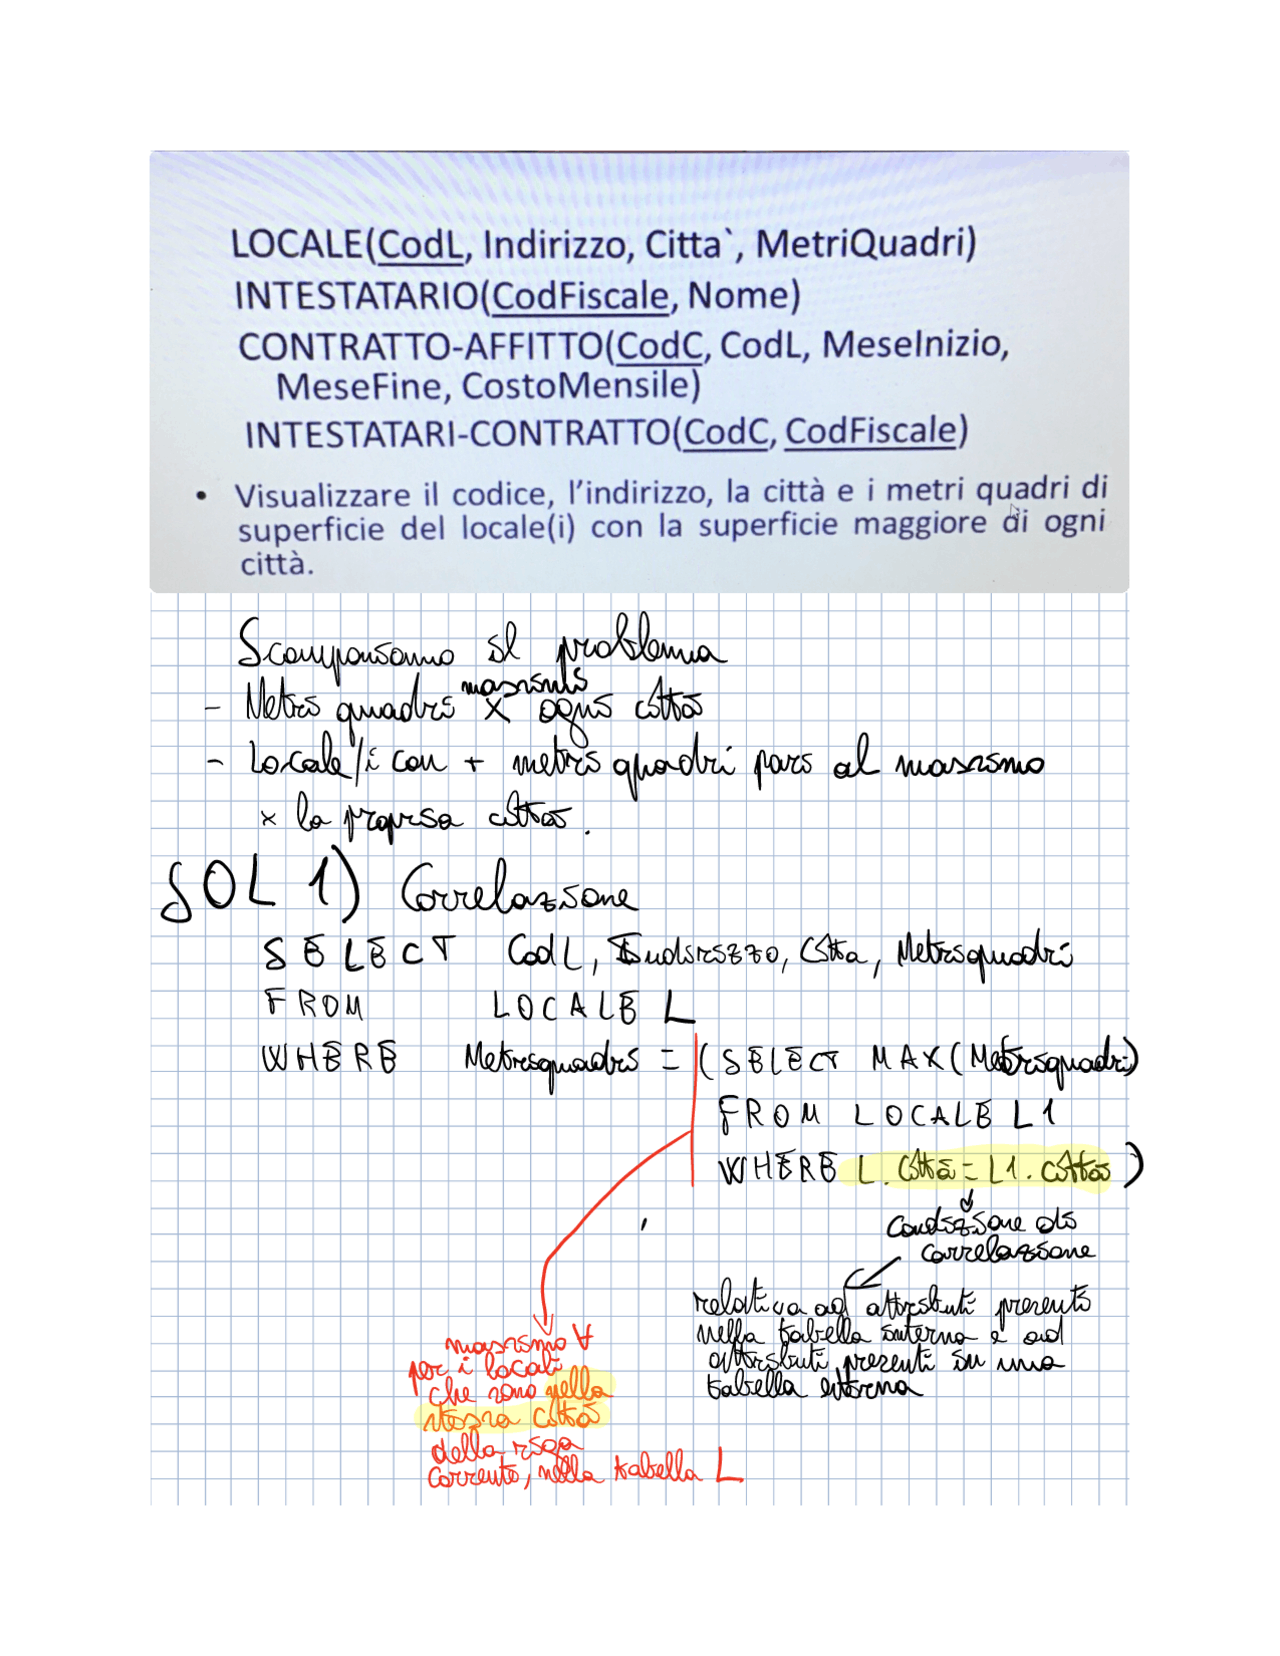 LOCALE(CodL, Indirizzo, Citta`, MetriQuadri)
INTESTATARIO(CodFiscale, Nome)
CONTRATTO-AFFITTO(CodC, CodL, MeseInizio,
MeseFine, CostoMensile)
INTESTATARI-CONTRATTO(CodC, CodFiscale)
• Visualizzare il codice, l'indirizzo, la città e i metri quadri di
superficie del locale(i) con la superficie maggiore di ogni
città.
Scomponiamo il problema
massimi
- Metri quadri x ogni città
- Locale/i con + metri quadri pari al massimo
x la propria città.
SOL 1) Correlazione
SELECT CodL, Indirizzo, Città, Metriquadri
FROM LOCALE L
WHERE Metriquadri = (SELECT MAX(Metriquadri)
FROM LOCALE L1
WHERE L.città = L1.città)
condizione di
correlazione
relativa ad attributi presenti
nella tabella interna e ad
attributi presenti su una
tabella esterna
massimo ∀
per i locali
che sono nella
stessa città
della riga
corrente, nella tabella L